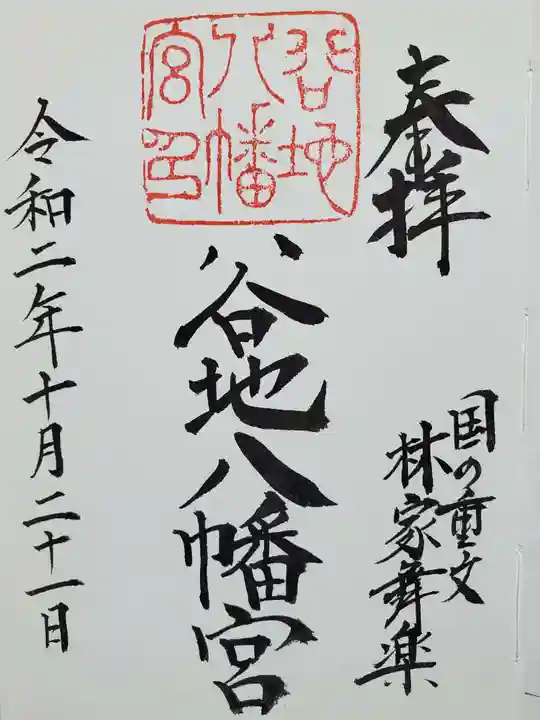 奉拝
国の重文
林家舞楽
谷地八幡宮印
谷地八幡宮
令和二年十月二十一日